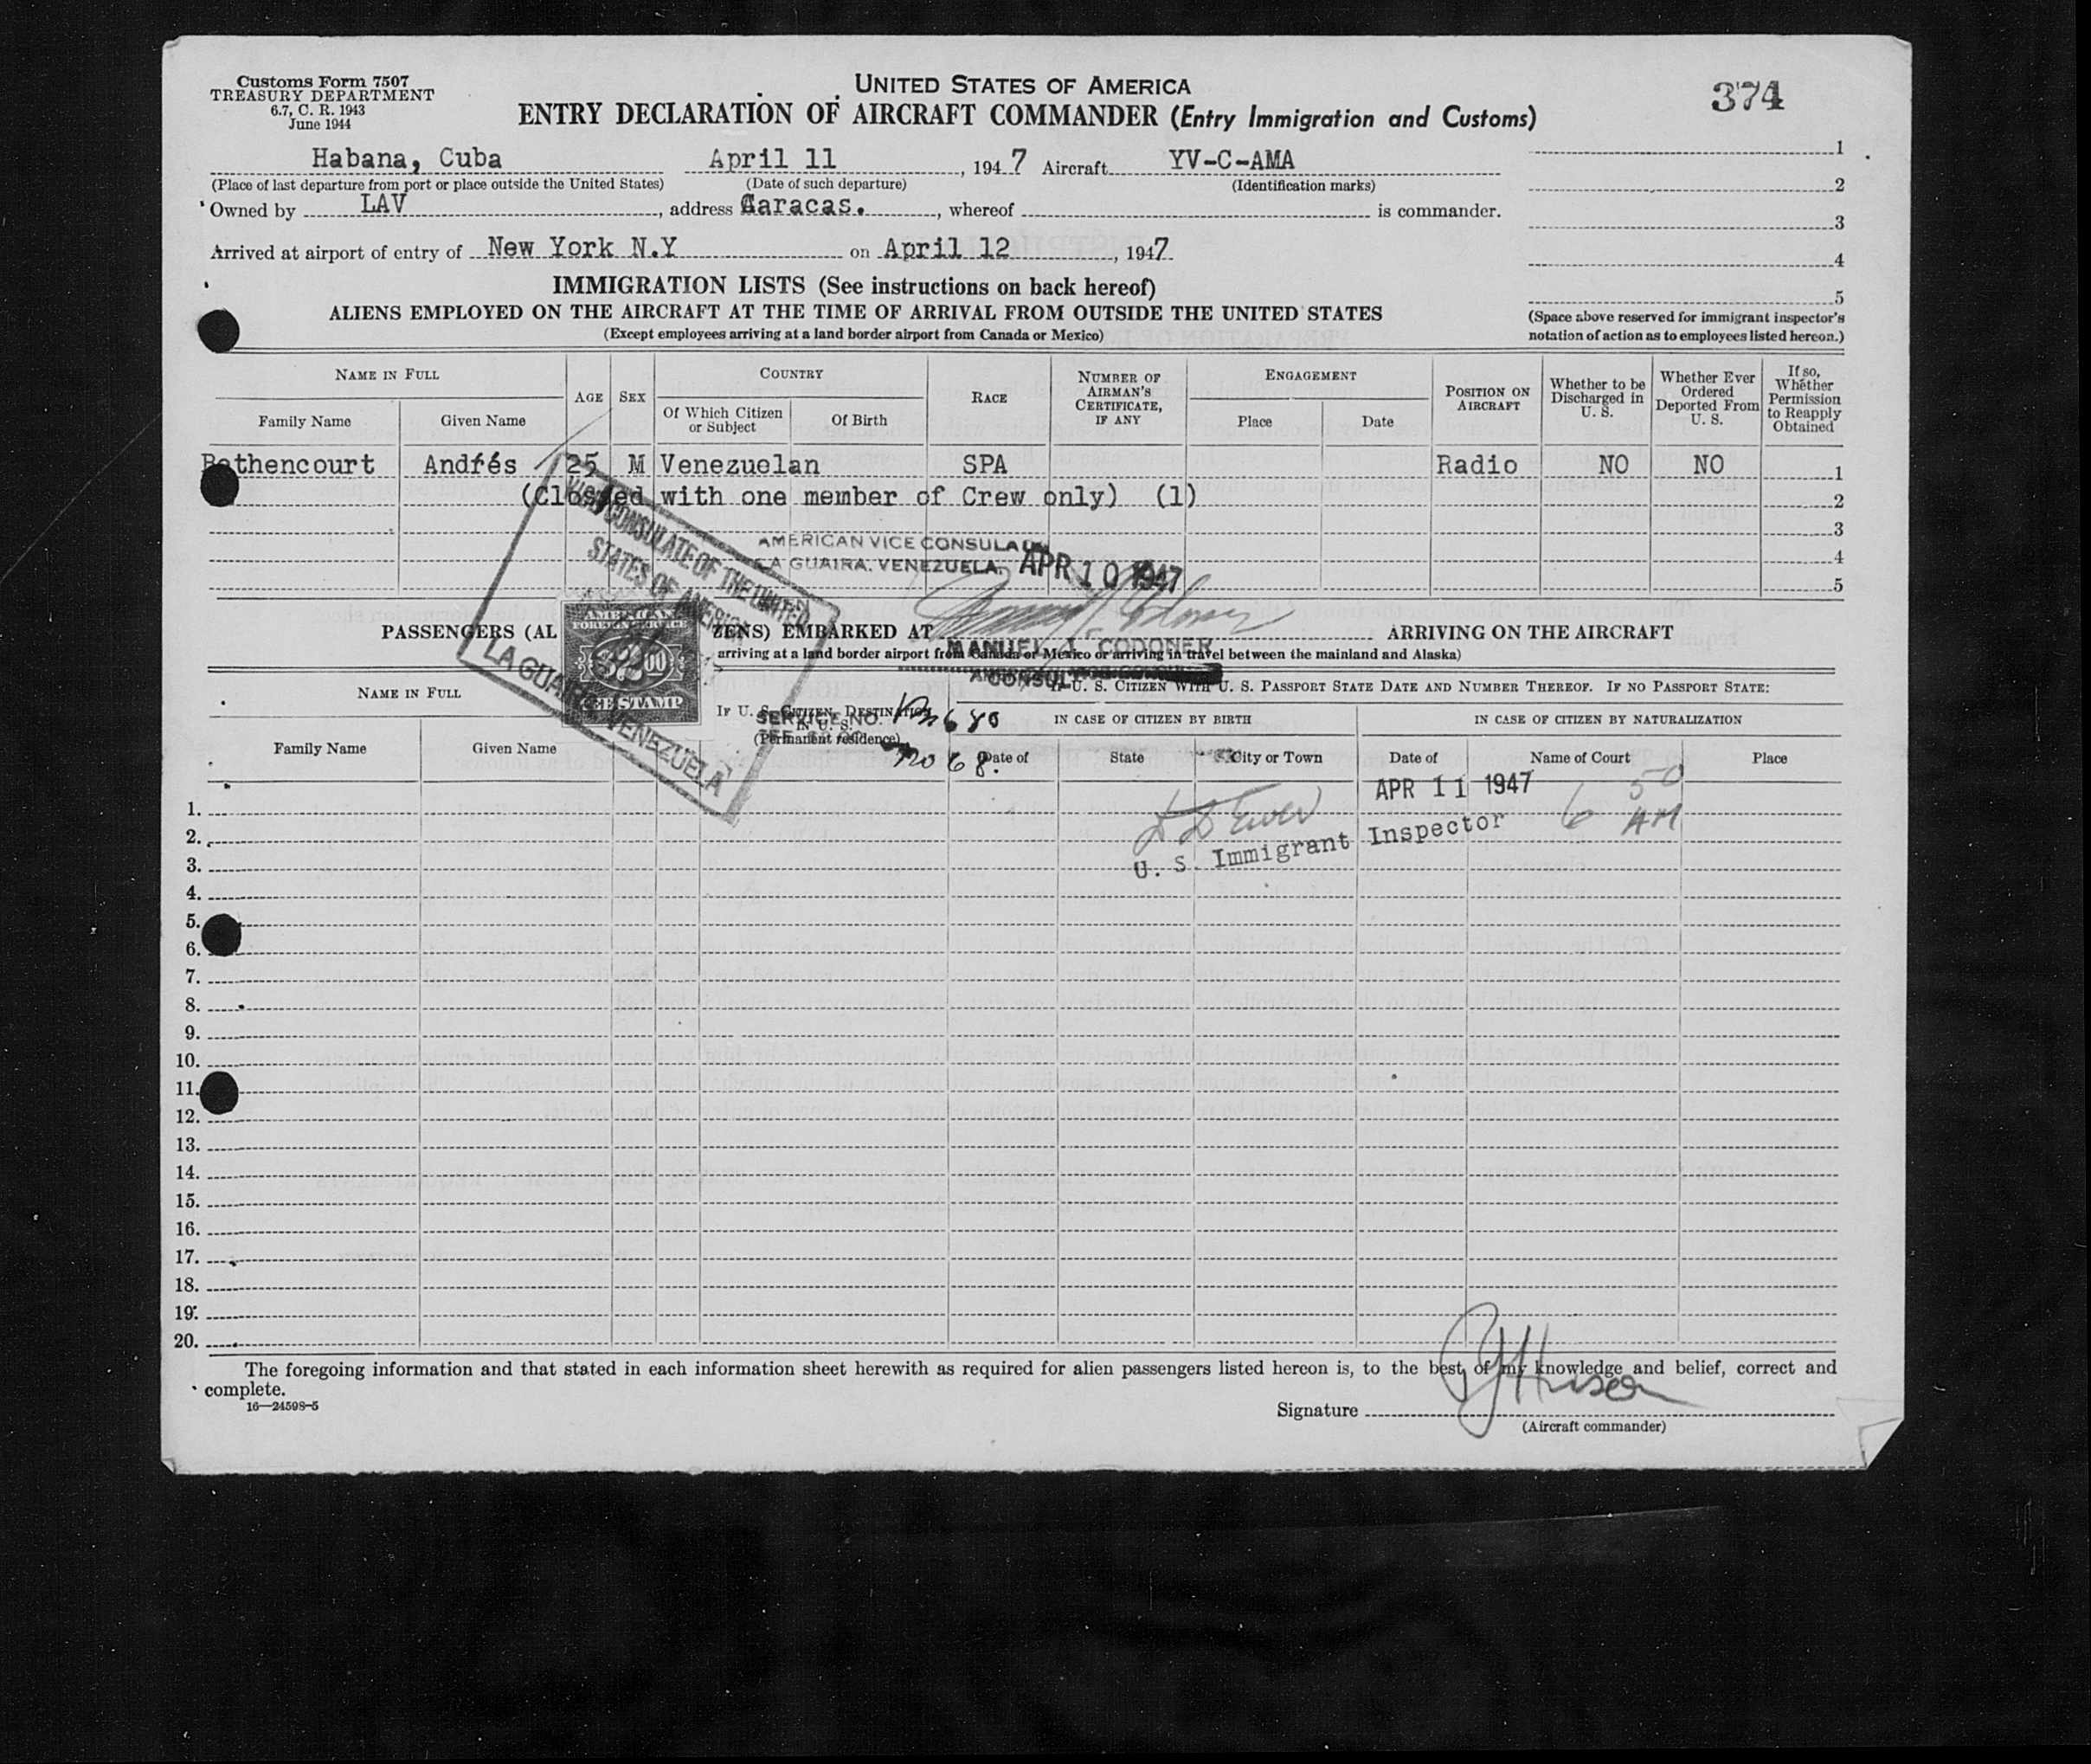 Customs Form 7507
TREASURY DEPARTMENT
6.7, C. R. 1943
June 1944
UNITED STATES OF AMERICA
ENTRY DECLARATION OF AIRCRAFT COMMANDER (Entry Immigration and Customs)
374
Habana, Cuba April 11, 1947 Aircraft YV-C-AMA
(Place of last departure from port or place outside the United States) (Date of such departure) (Identification marks)
Owned by LAV, address Caracas., whereof is commander.
Arrived at airport of entry of New York N.Y on April 12, 1947
1
2
3
4
5
(Space above reserved for immigrant inspector's
notation of action as to employees listed hereon.)
IMMIGRATION LISTS (See instructions on back hereof)
ALIENS EMPLOYED ON THE AIRCRAFT AT THE TIME OF ARRIVAL FROM OUTSIDE THE UNITED STATES
(Except employees arriving at a land border airport from Canada or Mexico)
NAME IN FULL
Family Name Given Name
AGE
SEX
COUNTRY
Of Which Citizen or Subject
Of Birth
RACE
NUMBER OF AIRMAN'S CERTIFICATE, IF ANY
ENGAGEMENT
Place Date
POSITION ON AIRCRAFT
Whether to be Discharged in U. S.
Whether Ever Ordered Deported From U. S.
If so, Whether Permission to Reapply Obtained
Bethencourt Andrés 25 M Venezuelan SPA Radio NO NO 1
(Closed with one member of Crew only) (1) 2
3
4
5
VICE CONSULATE OF THE UNITED
STATES OF AMERICA
LA GUAIRA, VENEZUELA
AMERICAN VICE CONSULATE
LA GUAIRA. VENEZUELA. APR 10 1947
AMERICAN
FOREIGN SERVICE
FEE STAMP
PASSENGERS (AL ZENS) EMBARKED AT ARRIVING ON THE AIRCRAFT
arriving at a land border airport from Canada or Mexico or arriving in travel between the mainland and Alaska)
MANUEL J. CODONER
CONSUL
NAME IN FULL
Family Name Given Name
IF U. S. CITIZEN, DESTINATION IN U. S.
(Permanent residence)
SERVICE NO. 680
No 68.
IF U. S. CITIZEN WITH U. S. PASSPORT STATE DATE AND NUMBER THEREOF. IF NO PASSPORT STATE:
IN CASE OF CITIZEN BY BIRTH
IN CASE OF CITIZEN BY NATURALIZATION
Date of State City or Town Date of Name of Court Place
APR 11 1947 6 50 AM
U. S. Immigrant Inspector
1.
2.
3.
4.
5.
6.
7.
8.
9.
10.
11.
12.
13.
14.
15.
16.
17.
18.
19.
20.
The foregoing information and that stated in each information sheet herewith as required for alien passengers listed hereon is, to the best of my knowledge and belief, correct and
complete.
16—24598-5
Signature
(Aircraft commander)